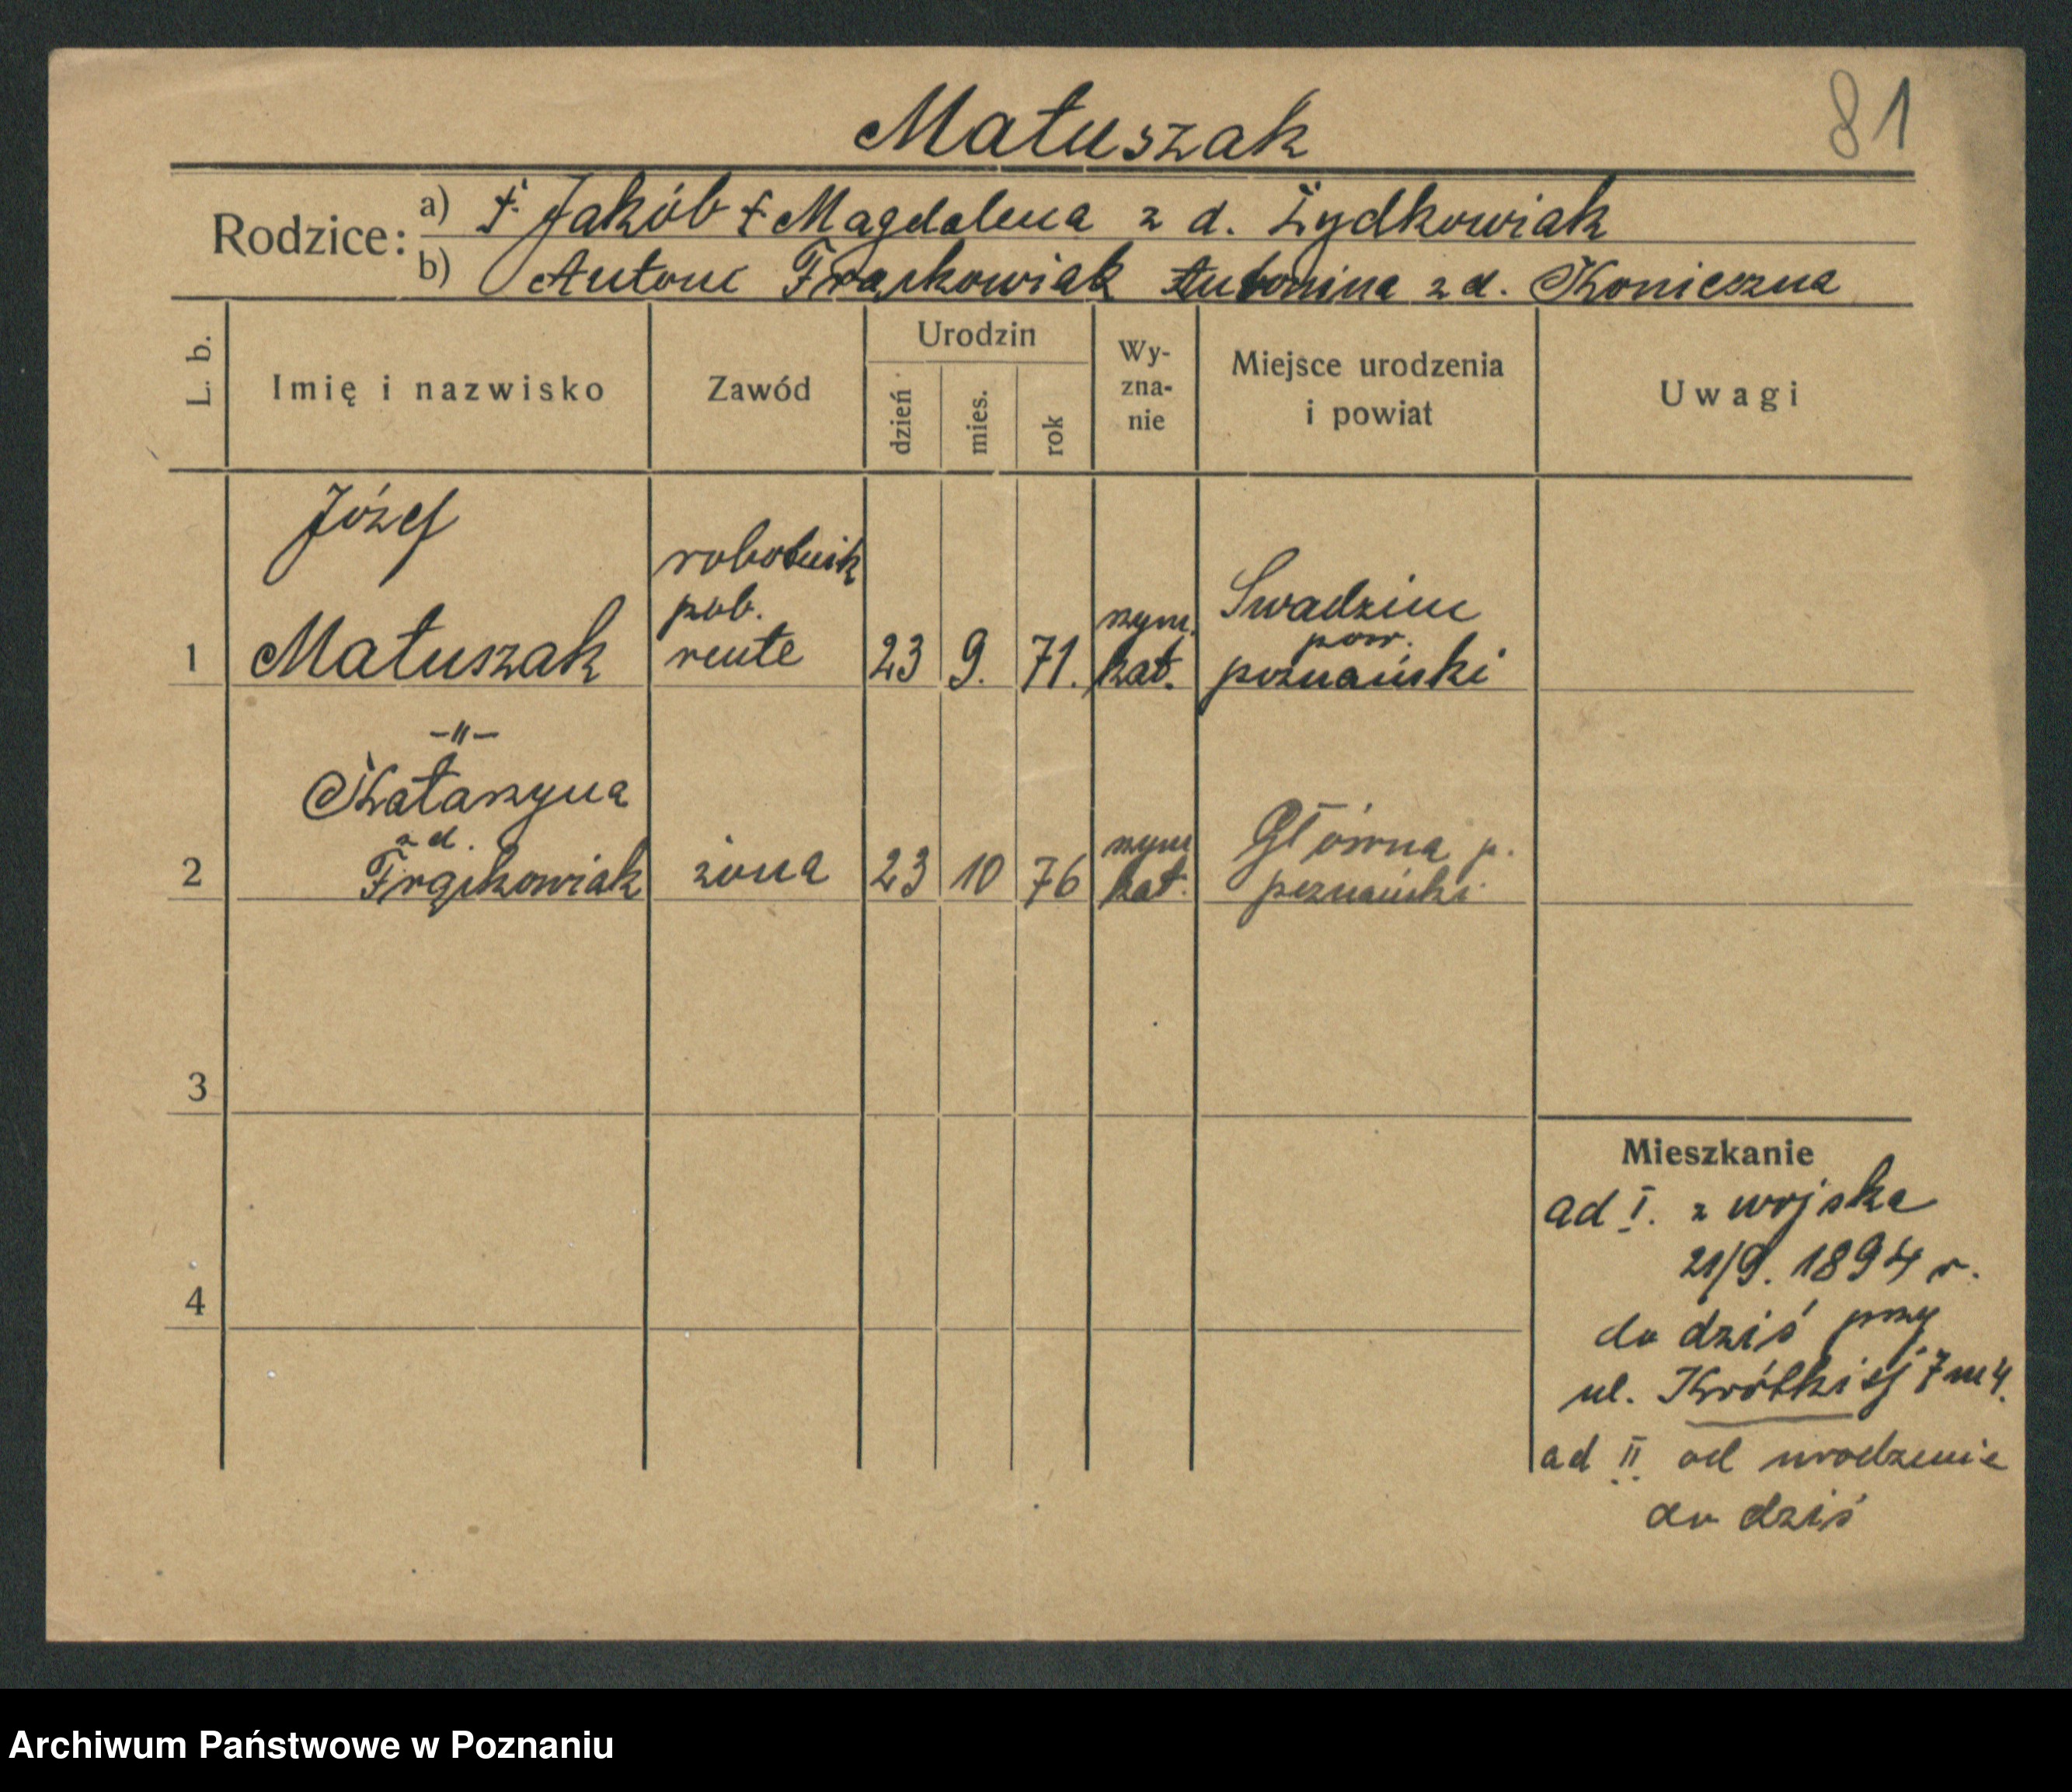 81
Matuszak
Rodzice:
a) † Jakób † Magdalena z d. Żydkowiak
b) Antoni Frąckowiak Antonina z d. Konieczna
L. b.
Imię i nazwisko
Zawód
Urodzin
dzień
mies.
rok
Wy-
zna-
nie
Miejsce urodzenia
i powiat
Uwagi
Józef
robotnik
pob.
1 Matuszak rente 23 9. 71. rzym. kat. Swadzim
pow.
poznański
-"-
Katarzyna
z d.
2 Frąckowiak żona 23 10 76 rzym kat. Główna p.
poznański
3
4
Mieszkanie
ad I. z wojska
21/9. 1894 r.
do dziś przy
ul. Krótkiej 7 m 4.
ad II od urodzenia
do dziś
Archiwum Państwowe w Poznaniu